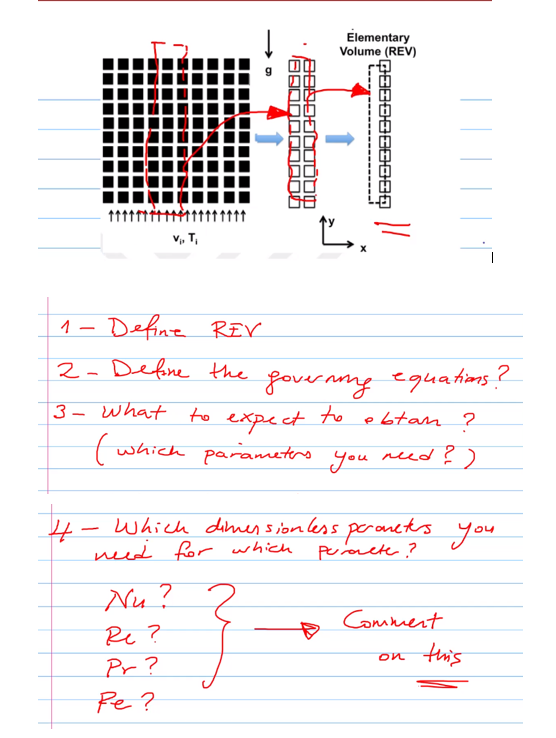 Elementary
Volume (REV)
g
y
x
vi, Ti
1 - Define REV
2 - Define the governing equations?
3 - What to expect to obtain ?
( which parameters you need ? )
4 - Which dimensionless parameters you
need for which parameter?
Nu ?
Re ?
Pr ?
Pe ?
Comment
on this